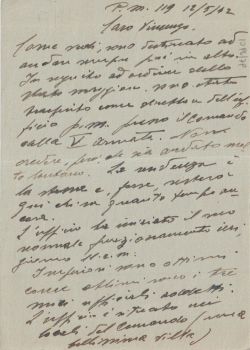 P.M. 119 12/5/42
Caro Vincenzo,
Come vedi, sono destinato ad
andar sempre più in alto.
In seguito ad ordine dello
Stato Maggiore, sono stato
trasferito come direttore dell'uf
ficio p.m. presso il Comando
della V Armata. Non
credere, però, che sia andato mol
to lontano. La residenza è
la stessa e, forse, resterò
qui chi sa quanto tempo an
cora.
L'ufficio ha iniziato il suo
normale funzionamento il
giorno 11 c.m.
Impressioni ottime
come ottimi sono i tre
miei ufficiali addetti.
L'ufficio è situato nei
locali del Comando (una
bellissima villa)